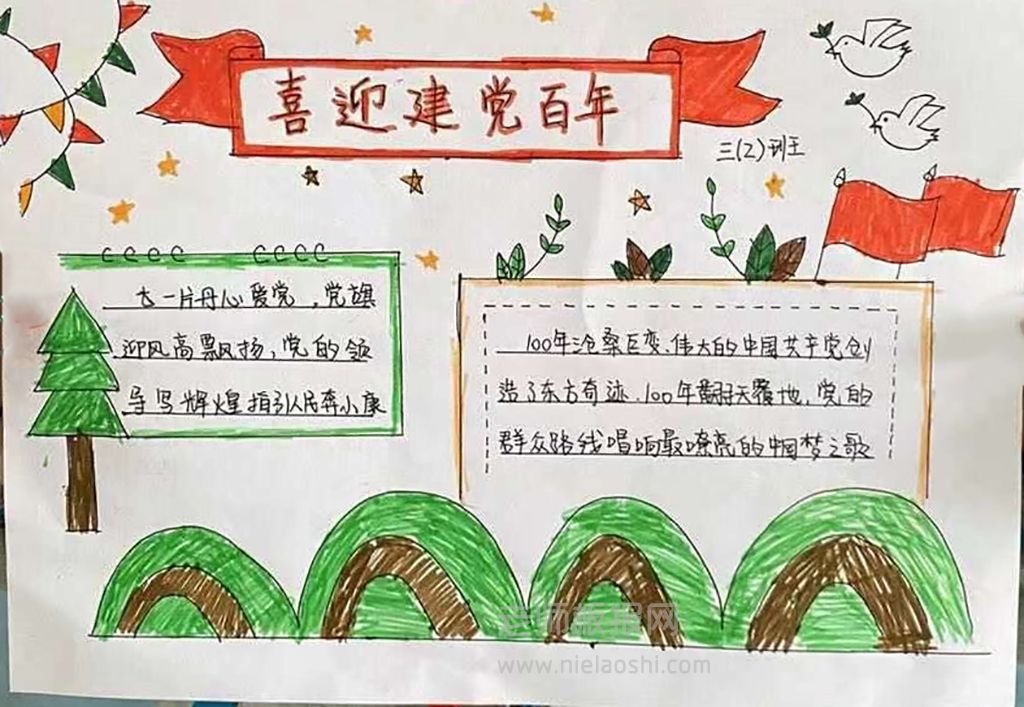 喜迎建党百年
三(2)班王
七一片丹心爱党,党旗
迎风高飘扬,党的领
导写辉煌指引人民奔小康
100年沧桑巨变.伟大的中国共产党创
造了东方奇迹.100年翻天覆地,党的
群众路线唱响最嘹亮的中国梦之歌
老师教报网
www.nielaoshi.com